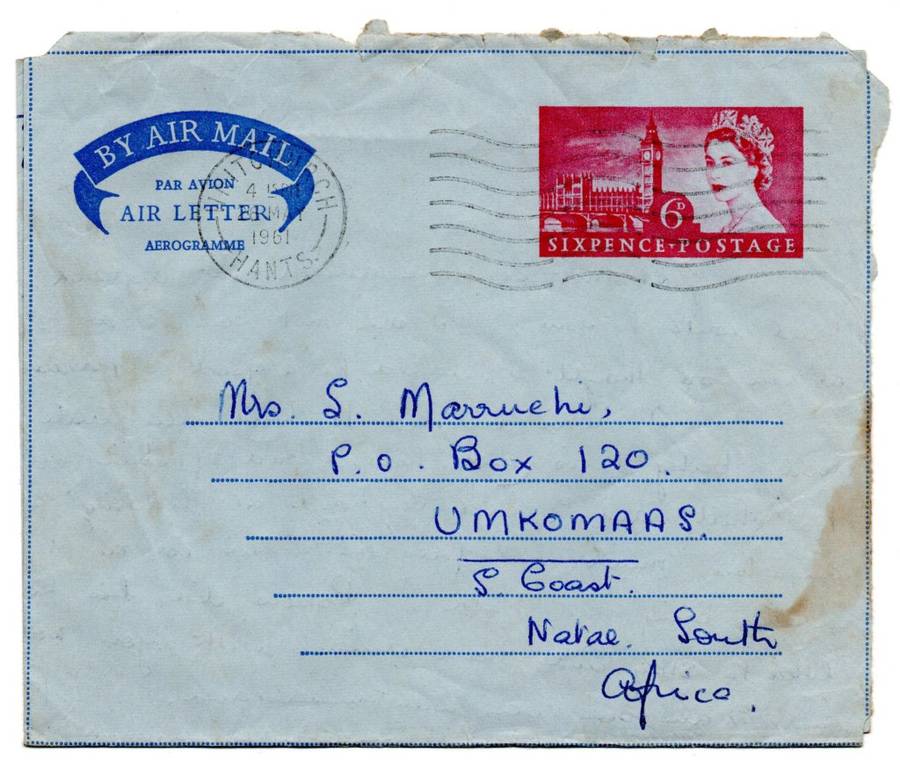 BY AIR MAIL
PAR AVION
AIR LETTER
AEROGRAMME
4
1961
HANTS.
6D
SIXPENCE · POSTAGE
Mrs. S. Marruchi,
P.O. Box 120.
UMKOMAAS.
S. Coast.
Natal. South
Africa.